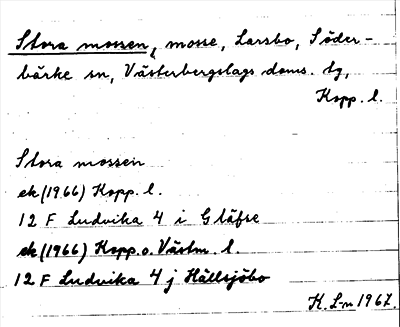 Stora mossen, mosse, Larsbo, Söder-
bärke sn, Västerbergslags doms. tg,
Kopp. l.
Stora mossen
ek (1966) Kopp. l.
12 F Ludvika 4 i Gläfse
ek (1966) Kopp. o. Västm. l.
12 F Ludvika 4 j Hällsjöbo
K. L-m 1967.